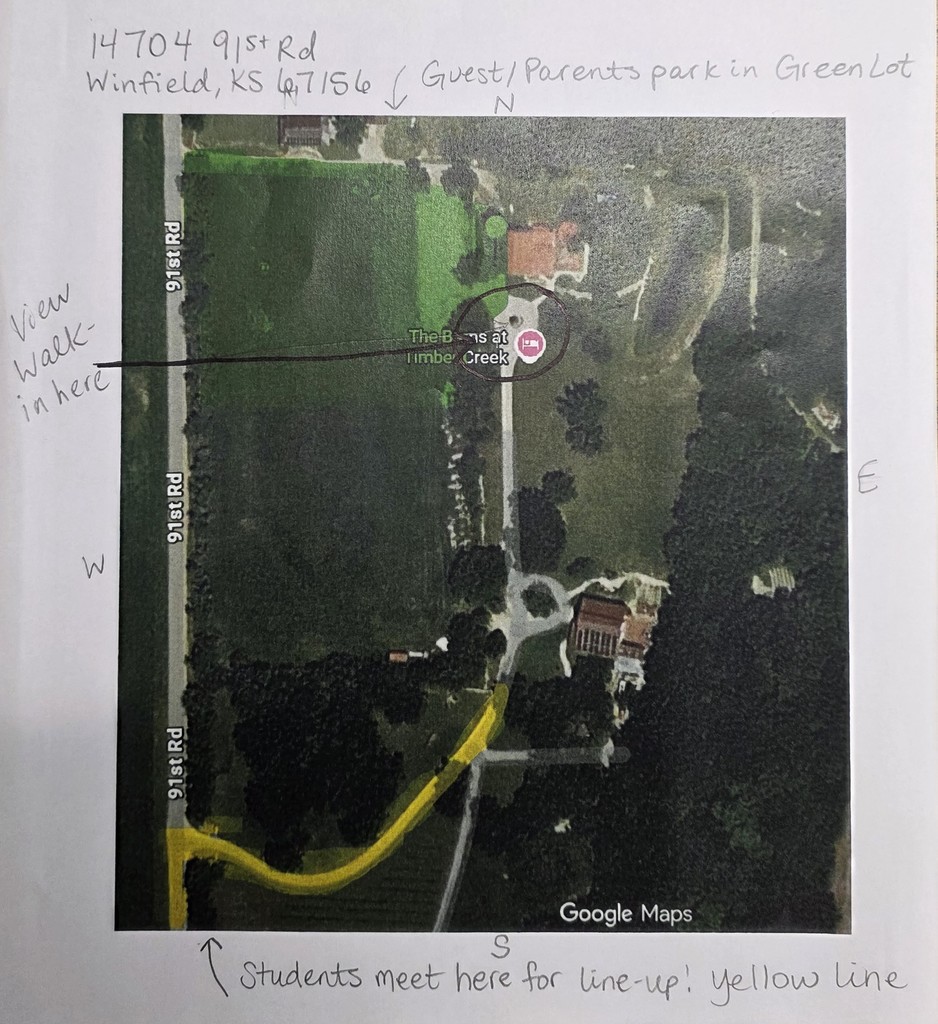 14704 91st Rd
Winfield, KS 67156
Guest/Parents park in Green Lot
N
91st Rd
View
Walk-
in here
The Barns at
Timber Creek
91st Rd
E
W
91st Rd
Google Maps
S
Students meet here for line-up! yellow line